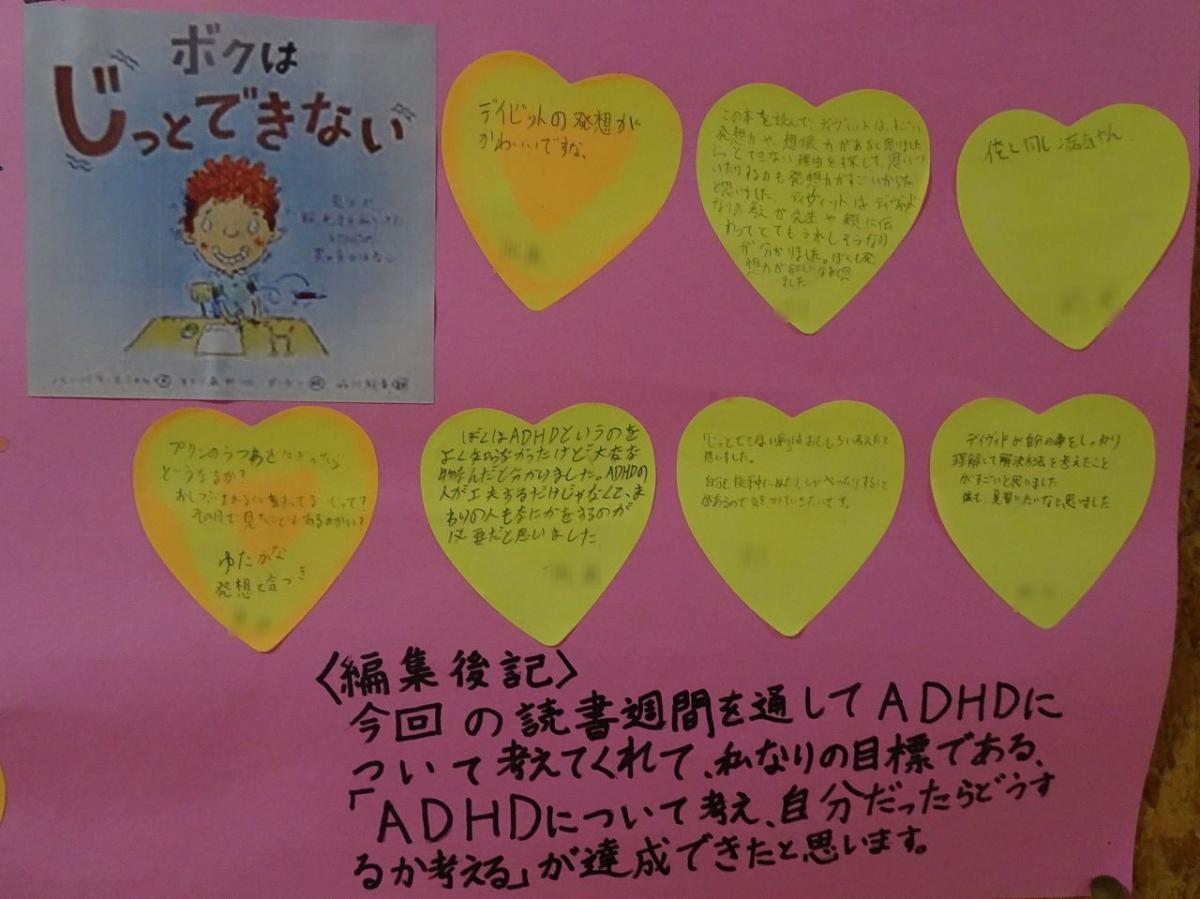 ボクは
じっとできない
デイビットの発想力に
かわいいですな、
この本を読んで、ディヴィットは、すごい
発想力や、想像力があると思いました
じっとできない理由を探して思いつ
いたりするのも発想力がすごいからだ
と思いました。ディヴィットはディヴィット
なりの考えが先生や親に伝
わってとてもうれしそうなのり
が分かりました。ぼくも発
想力が欲しいなあと思
いました
俺と同じ
プリンのうつわを
どうなるか?
その目で見たことはあるのかい?
ゆたかな
発想と
ぼくはADHDというのを
よく知らなかったけど大変な
物なんだと分かりました。ADHDの
人が工夫するだけじゃなくて、ま
わりの人もなにかをするのが
必要だと思いました
「じっとできない病」はおもしろい考えだと
思いました。
自分も授業中にねたり、しゃべったりすること
があるので気をつけていきたいです。
デイヴィドが自分の事をしっかり
理解して解決方法を考えたこと
がすごいと思いました
僕も、見習いたいなと思いました
〈編集後記〉
今回の読書週間を通してADHDに
ついて考えてくれて、私なりの目標である、
「ADHDについて考え、自分だったらどうす
るか考える」が達成できたと思います。